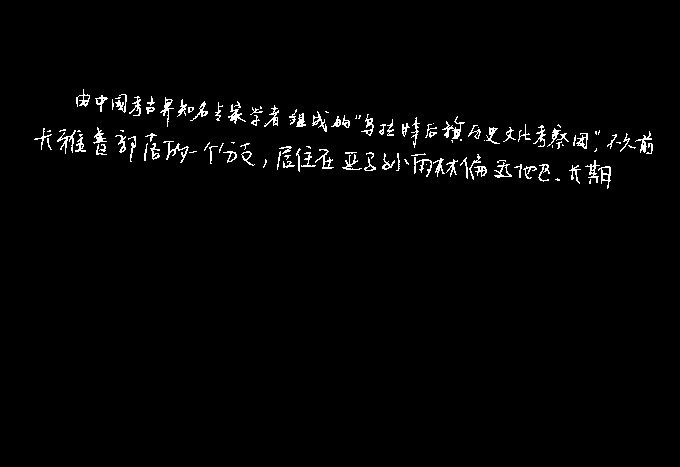 由中国考古界知名专家学者组成的“乌拉特后旗历史文化考察团”,不久前
卡雅普部落的一个分支,居住在亚马孙雨林偏远地区、长期